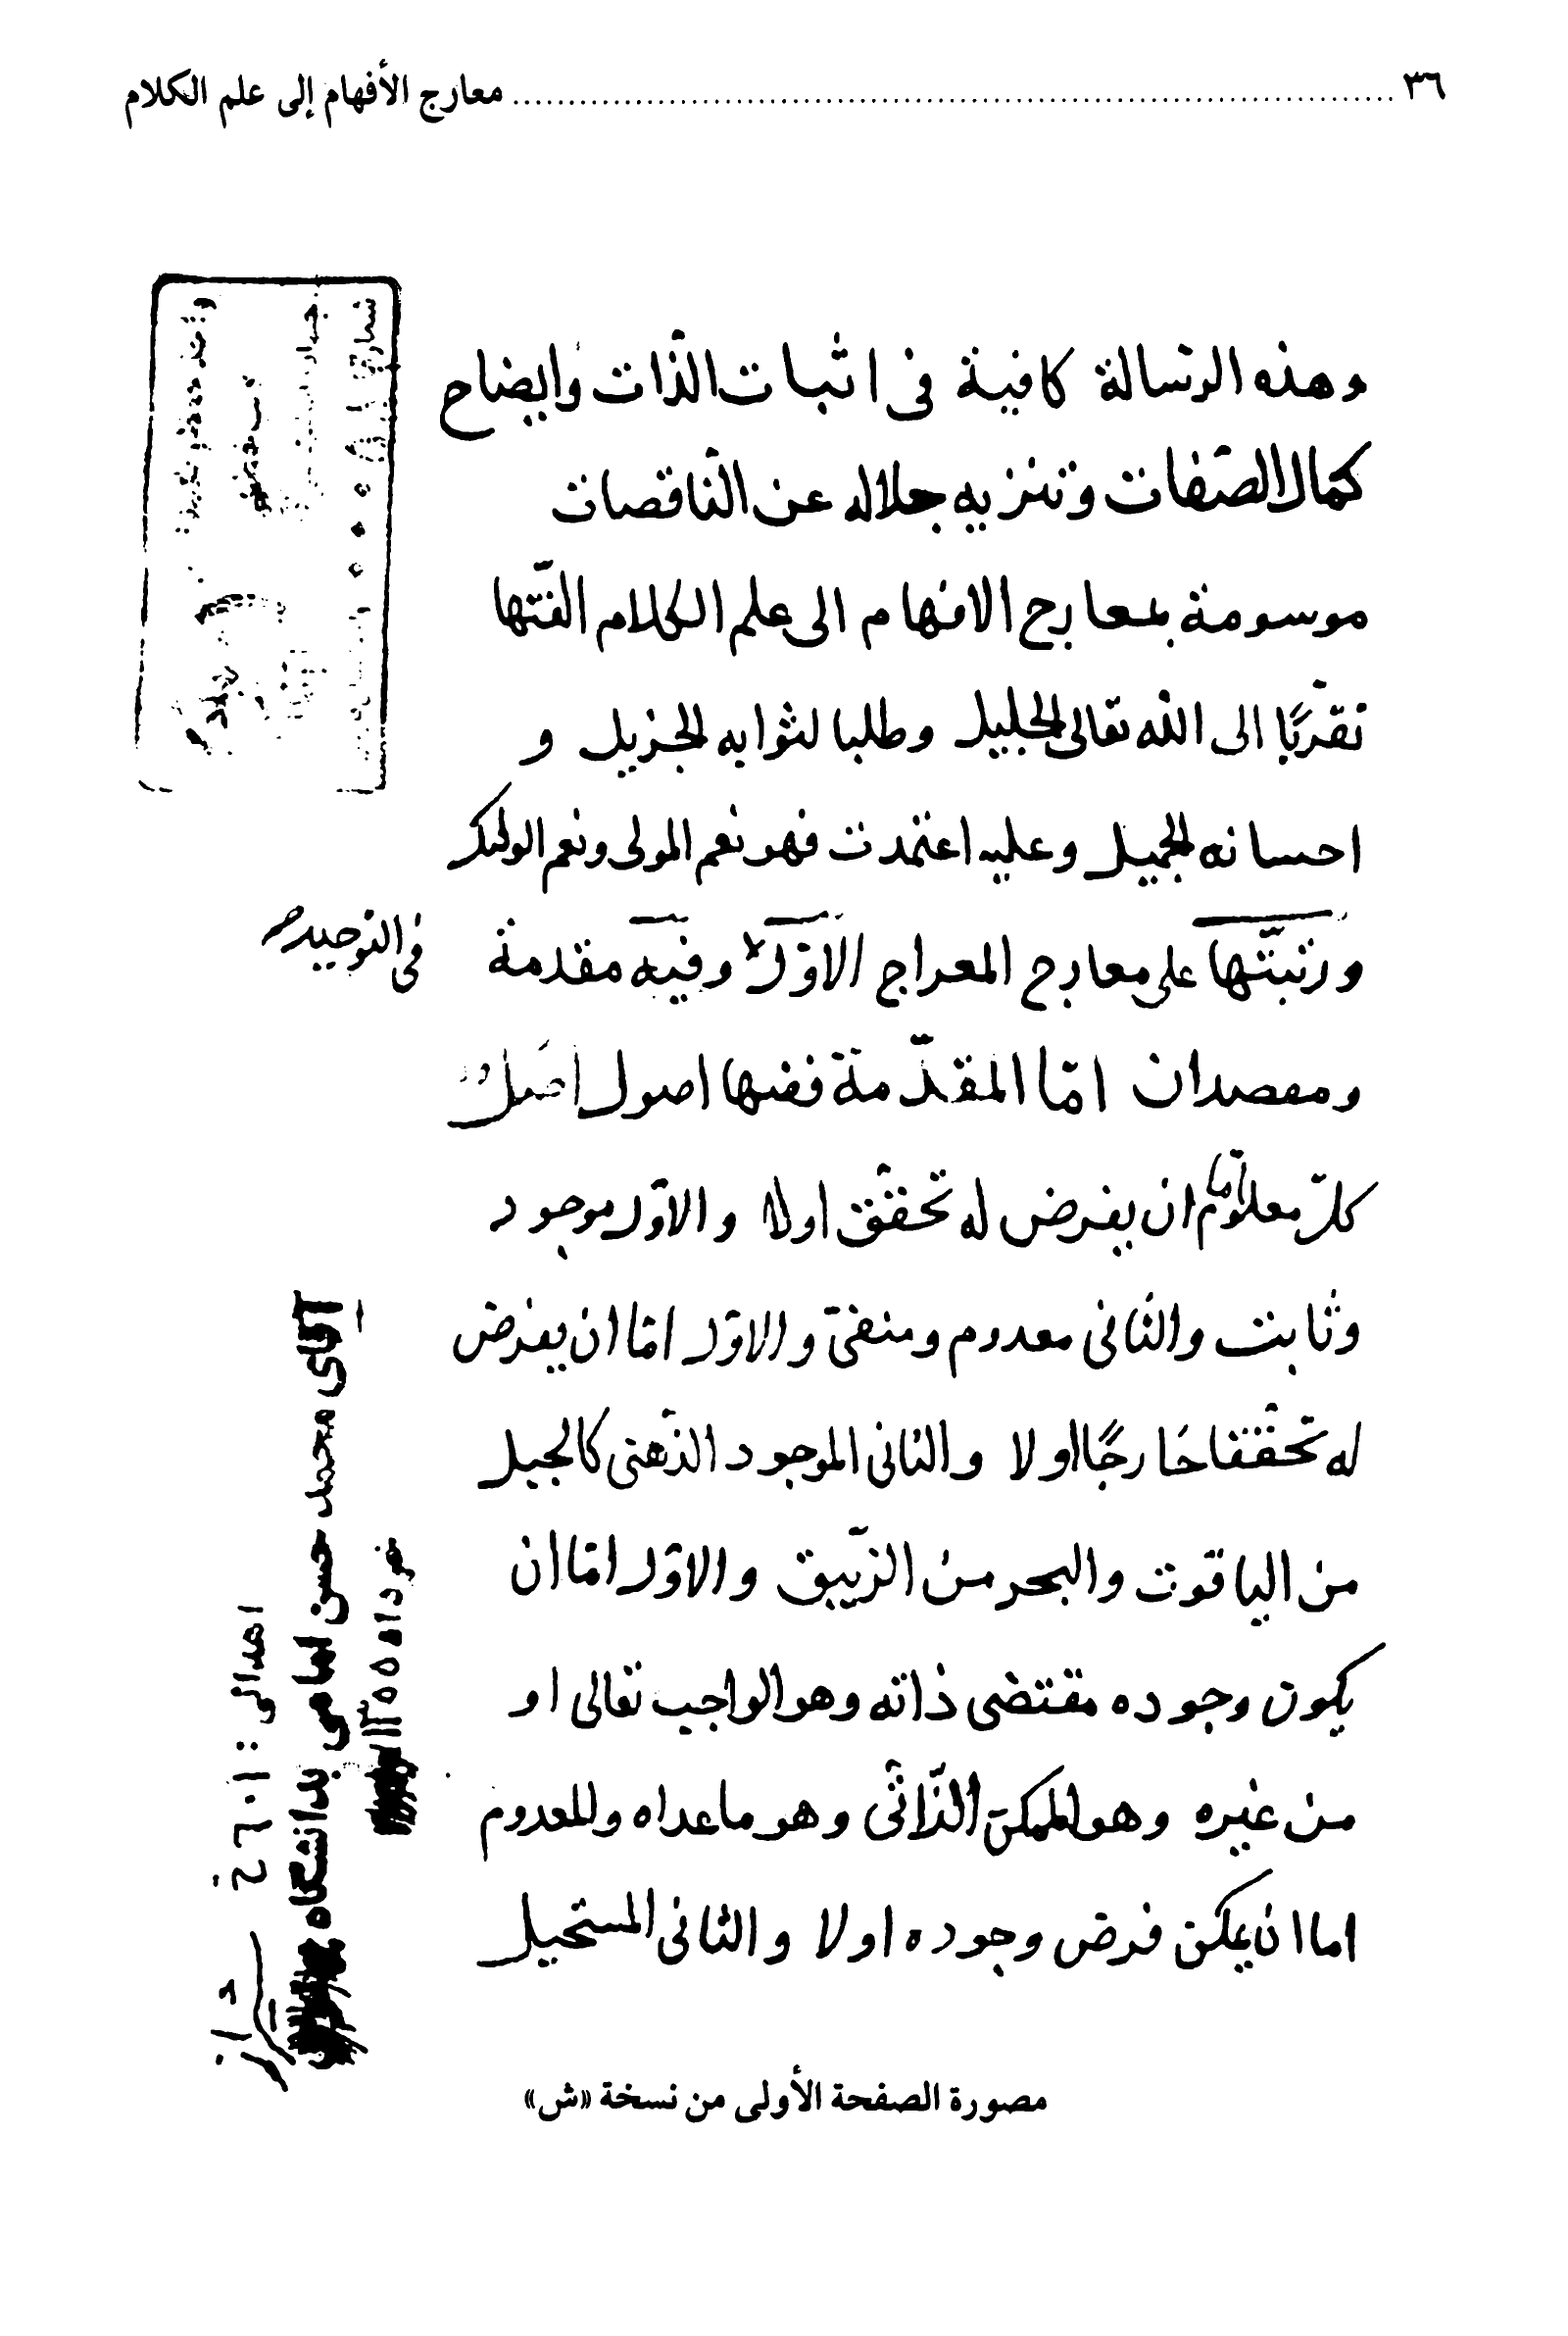 ٣٦ ........ معارج الأفهام إلى علم الكلام
وهذه الرسالة كافية فى اثبات الذّات وايضاح
كمال الصّفات وتنزيه جلاله عن النّاقصات
موسومة بمعارج الافهام الى علم الكلام الّفتها
تقرّبًا الى الله تعالى الجليل وطلبا لثوابه الجزيل و
احسانه الجميل وعليه اعتمدت فهو نعم المولى ونعم الوكيل
ورتبّتها على معارج المعراج الاوّل وفيه مقدمة
فى التوحيد
ومقصدان امّا المقدّمة ففيها اصول اصل
كلّ معلوم امّا ان يفرض له تحقّق اولا والاوّل موجود
وثابت والثانى معدوم ومنفىّ والاوّل امّا ان يفرض
له تحقّقا خارجًا اولا والثانى الموجود الذّهنى كالجبل
من الياقوت والبحر من الزّيبق والاوّل امّا ان
يكون وجوده مقتضى ذاته وهو الواجب تعالى او
من غيره وهو الممكن الذّاتّى وهو ما عداه والمعدوم
اما ان يمكن فرض وجوده اولا والثانى المستحيل
اهدائى
آقاى محمد حسن امامى بدانشگاه
خرداد ١٣٥٥
مصورة الصفحة الأولى من نسخة «ش»